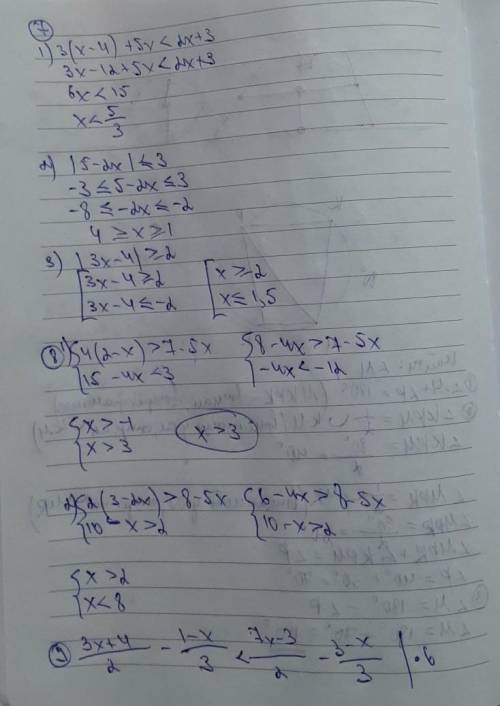 7
1) 3(x-4)+5x<2x+3
3x-12+5x<2x+3
6x<15
x<5/3
2) |5-2x|≤3
-3≤5-2x≤3
-8≤-2x≤-2
4≥x≥1
3) |3x-4|≥2
[3x-4≥2 [x≥2
[3x-4≤-2 [x≤1,5
8 1) {4(2-x)>7-5x {8-4x>7-5x
{15-4x<3 {-4x<-12
{x>-1
{x>3 x>3
2) {2(3-2x)>8-5x {6-4x>8-5x
{10-x>2 {10-x>2
{x>2
{x<8
9 (3x+4)/2 - (1-x)/3 < (7x-3)/2 - (3-x)/3 |·6